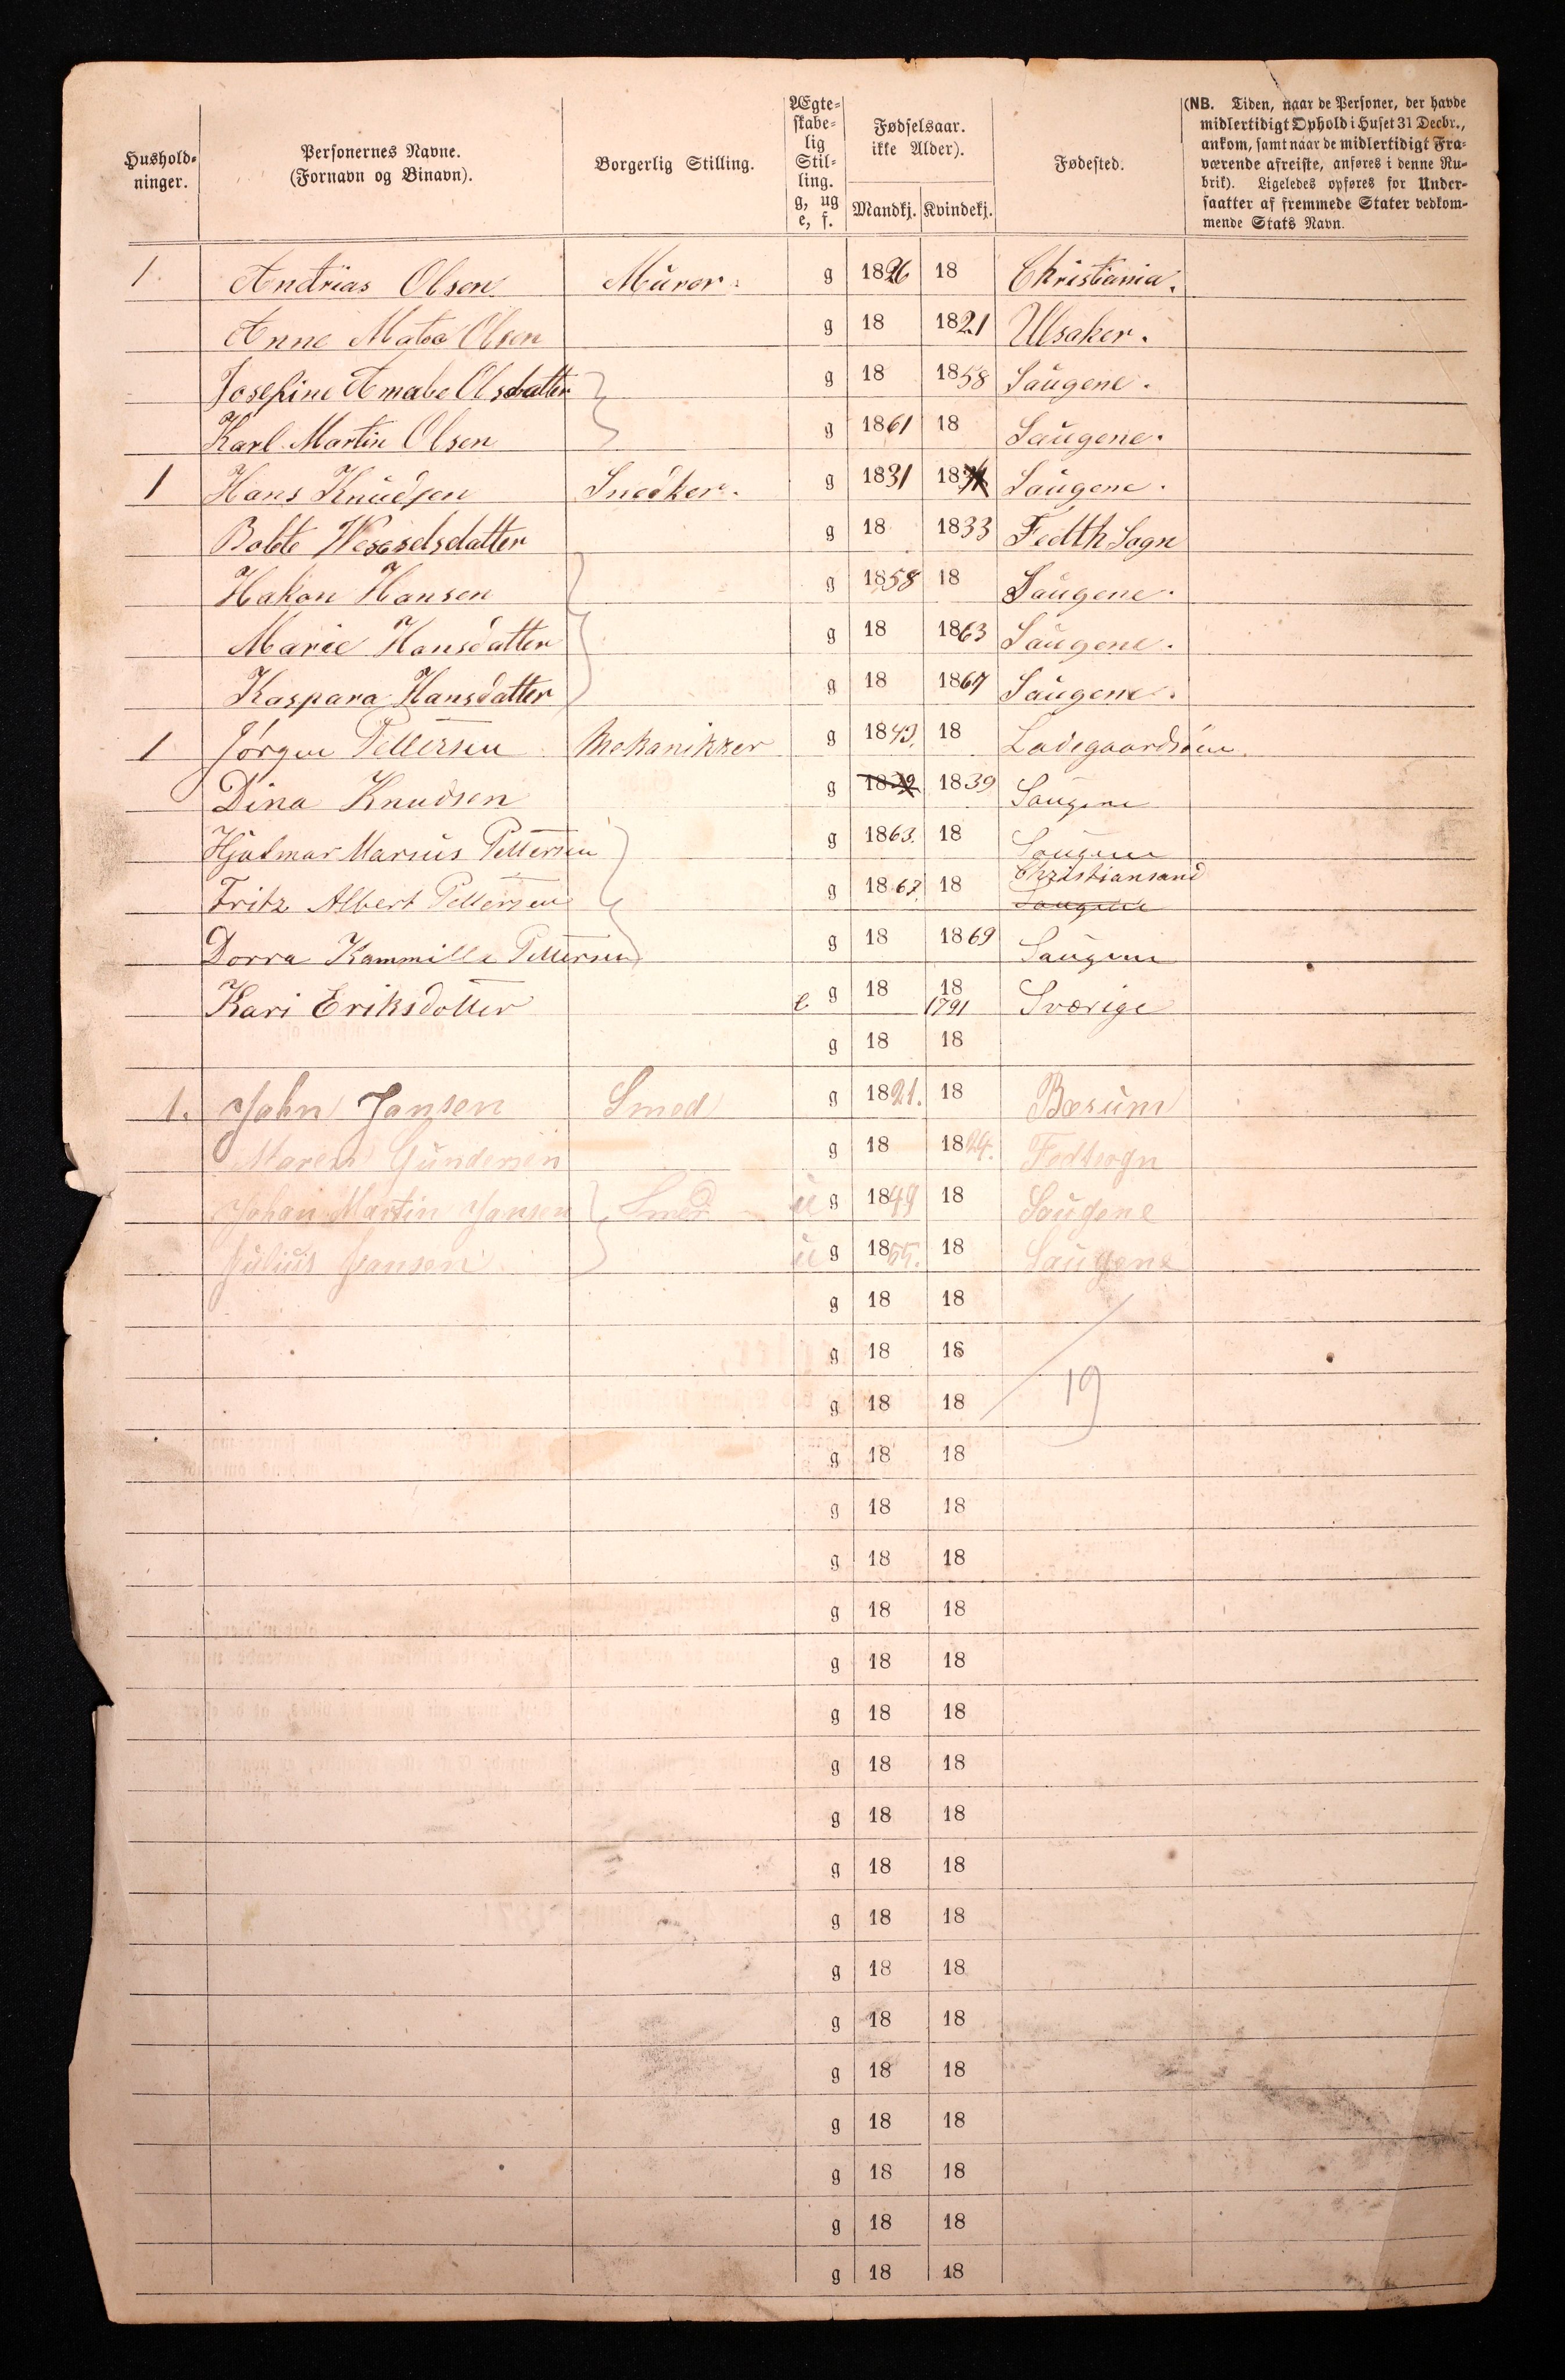 Hushold-
ninger.
Personernes Navne.
(Fornavn og Binavn).
Borgerlig Stilling.
Ægte-
skabe-
lig
Stil-
ling.
g, ug
e, f.
Fødselsaar.
ikke Alder).
Mandkj. Kvindekj.
Fødested.
(NB. Tiden, naar de Personer, der havde
midlertidigt Ophold i Huset 31 Decbr.,
ankom, samt naar de midlertidigt Fra-
værende afreiste, anføres i denne Ru-
brik). Ligeledes opføres for Under-
saatter af fremmede Stater vedkom-
mende Stats Navn.
1. Andrias Olsen Murer. g 1826 18 Christiania.
Anne Matea Olsen g 18 1821 Ulsaker.
Josefine Amabe Olsdatter g 18 1858 Saugene.
Karl Martin Olsen g 1861 18 Saugene.
1 Hans Knudsen Snedker. g 1831 18 Saugene.
Bolte Wesselsdatter g 18 1833 Fedth Sogn
Hakon Hansen g 1858 18 Saugene.
Marie Hansdatter g 18 1863 Saugene.
Kaspara Hansdatter g 18 1867 Saugene.
1 Jörgen Pettersen Mekanikker g 1843. 18 Ladegaardsöen.
Dina Knudsen g 1839 Saugene
Hjalmar Marius Pettersen g 1863. 18 Saugene
Fritz Albert Pettersen g 1867. 18 Christiansand Saugene
Dorra Kammilla Pettersen g 18 1869 Saugene
Kari Eriksdotter e g 18 18 1791 Sværige
g 18 18
1. John Jansen Smed g 1821. 18 Bærum
Maren Gundersen g 18 1824. Fedtsogn
Johan Martin Jansen Smed u g 1849 18 Saugene
Julius Jansen u g 1855. 18 Saugene
g 18 18
g 18 18
g 18 18 19
g 18 18
g 18 18
g 18 18
g 18 18
g 18 18
g 18 18
g 18 18
g 18 18
g 18 18
g 18 18
g 18 18
g 18 18
g 18 18
g 18 18
g 18 18
g 18 18
g 18 18